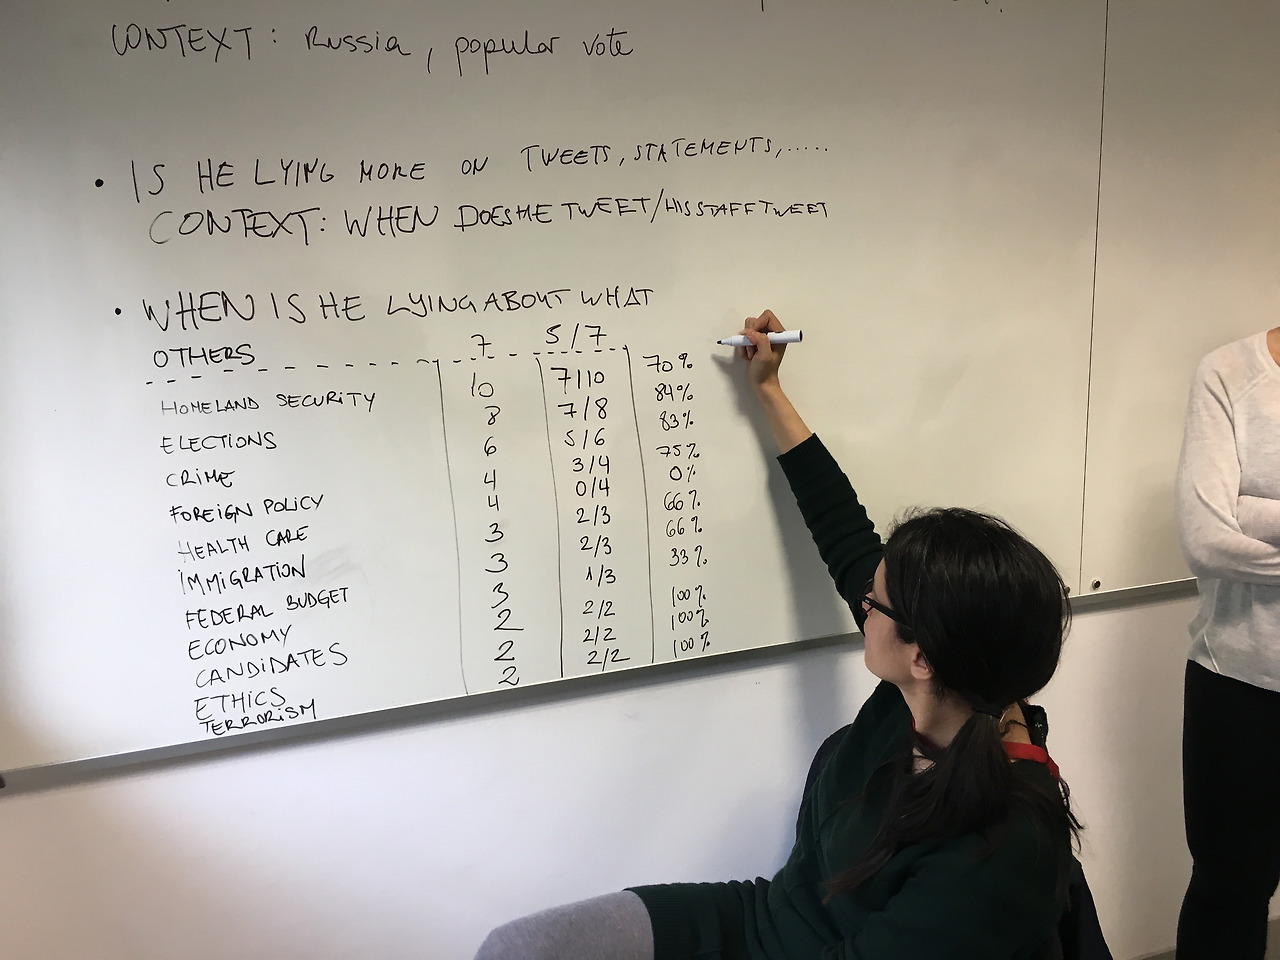 CONTEXT: Russia, popular vote
• IS HE LYING MORE ON TWEETS, STATEMENTS,.....
CONTEXT: WHEN DOES HE TWEET/HIS STAFF TWEET
• WHEN IS HE LYING ABOUT WHAT
OTHERS 7 5/7
HOMELAND SECURITY 10 7/10 70%
ELECTIONS 8 7/8 84%
CRIME 6 5/6 83%
FOREIGN POLICY 4 3/4 75%
HEALTH CARE 4 0/4 0%
IMMIGRATION 3 2/3 66%
FEDERAL BUDGET 3 2/3 66%
ECONOMY 3 1/3 33%
CANDIDATES 2 2/2 100%
ETHICS 2 2/2 100%
TERRORISM 2 2/2 100%